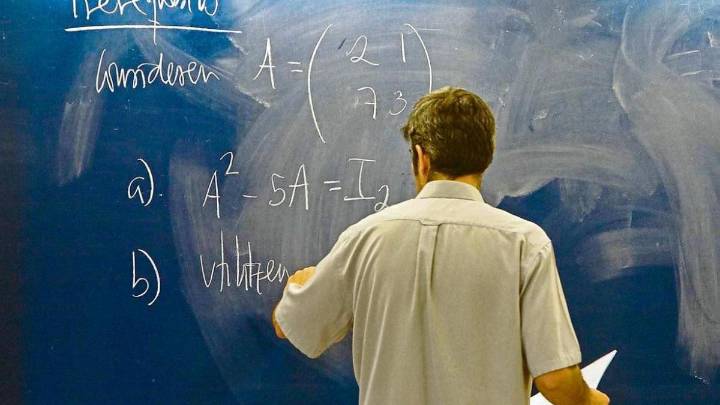 Considereu A = ( 2 1
7 3 )
a). A² - 5A = I₂
b) utilitzeu